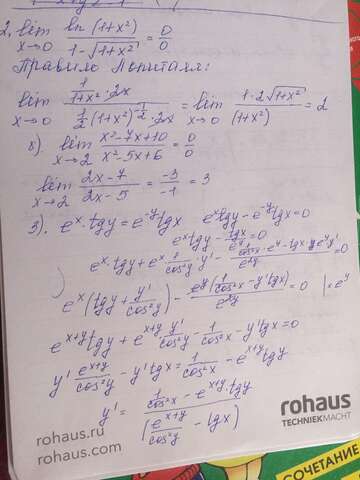 2. lim x→0 ln(1+x²)/1-√(1+x²) = 0/0
Правило Лопиталя:
lim x→0 1/(1+x²)·2x / 1/2(1+x²)^(-1/2)·2x = lim x→0 1·2√(1+x²)/(1+x²) = 2
б). lim x→2 x²-7x+10/x²-5x+6 = 0/0
lim x→2 2x-7/2x-5 = -3/-1 = 3
3). eˣ·tgy = e^(-y)tgx eˣtgy - e^(-y)tgx = 0
eˣtgy - tgx/e^y = 0
eˣ·tgy + eˣ 1/cos²y·y' -
eˣ(tgy + y'/cos²y) - e^y(1/cos²x - y'tgx)/e^(2y) = 0 |×e^y
e^(x+y)tgy + e^(x+y) y'/cos²y - 1/cos²x - y'tgx = 0
y' e^(x+y)/cos²y - y'tgx = 1/cos²x - e^(x+y)tgy
y' = 1/cos²x - e^(x+y)·tgy / (e^(x+y)/cos²y - tgx)
rohaus
TECHNIEKMACHT
rohaus.ru
rohaus.com
СОЧЕТАНИЕ